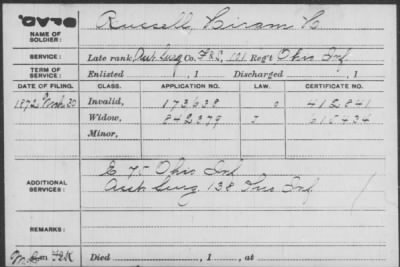 DEAD.
NAME OF SOLDIER: Russell, Hiram C
SERVICE: Late rank Asst Surg Co. F&S, 101 Reg't Ohio Inf
TERM OF SERVICE: Enlisted , 1 Discharged , 1
DATE OF FILING. CLASS. APPLICATION NO. LAW. CERTIFICATE NO.
1872 Mch 20 Invalid, 173638 412841
Widow, 842379 610434
Minor,
ADDITIONAL SERVICES: E 75 Ohio Inf
Asst Surg 138 Ind Inf
REMARKS:
Died , 1 , at